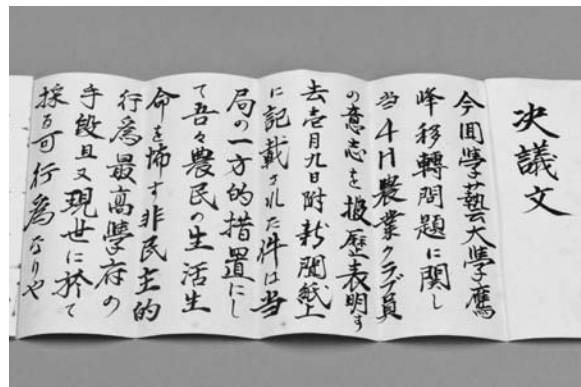 決議文
今囬學藝大學鷹
峰移轉問題に関し
当4H農業クラブ員
の意志を披歴表明す
去壱月九日附新聞紙上
に記載された件は当
局の一方的措置にし
て吾々農民の生活生
命を怖す非民主的
行為最高學府の
手段且又現世に於て
採る可行為なりや